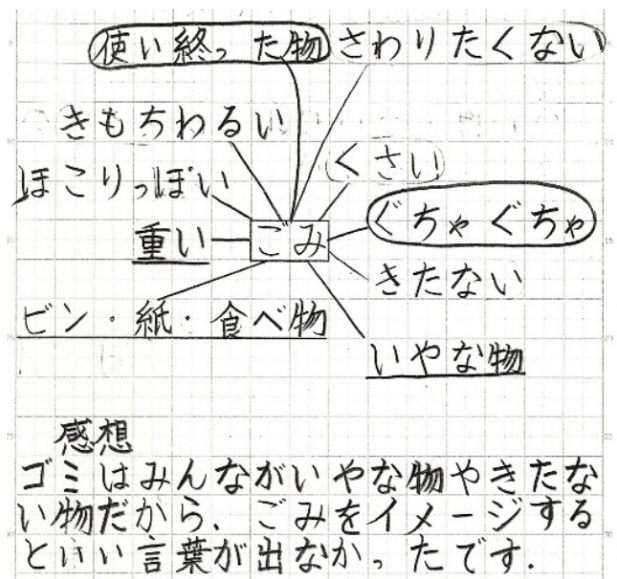 使い終った物 さわりたくない
きもちわるい
くさい
ほこりっぽい
ぐちゃぐちゃ
重い ごみ
きたない
ビン・紙・食べ物
いやな物
感想
ゴミはみんながいやな物やきたな
い物だから、ごみをイメージする
といい言葉が出なかったです.